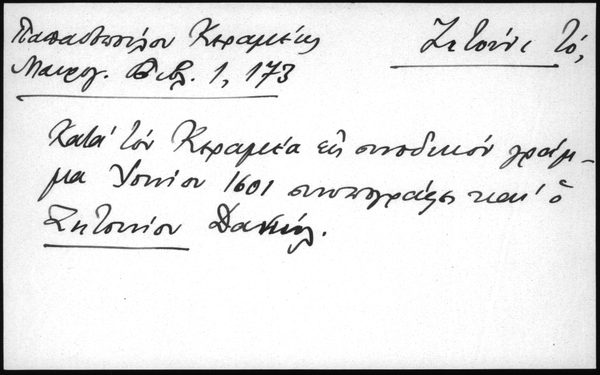 Παπαδοπούλου Κεραμέως
Μαυρογ. Βιβλ. 1, 173
Ζητούνι τό,
Κατά τόν Κεραμέα εἰς συνοδικόν γράμ-
μα Ἰουνίου 1601 συνυπογράφει καί ὁ
Ζητουνίου Δανιήλ.